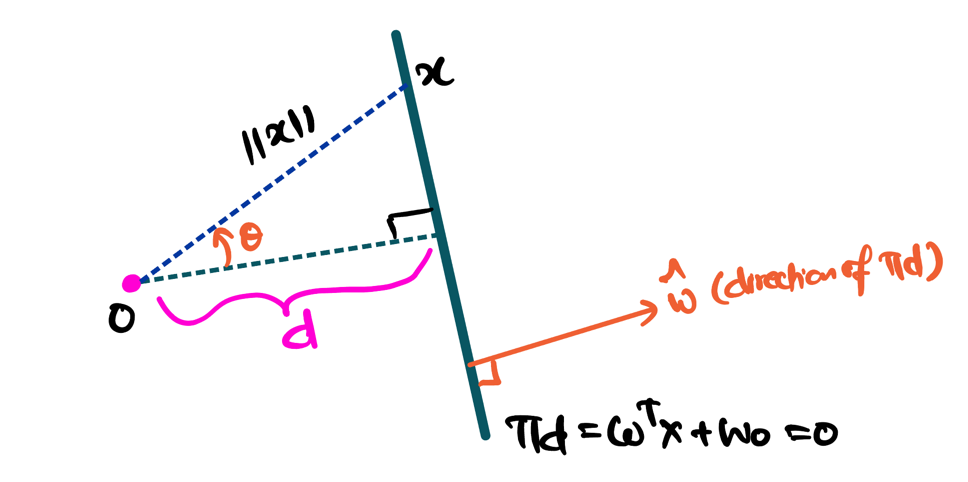 x
||x||
θ
0
d
ŵ (direction of πd)
πd = wᵀx + w₀ = 0